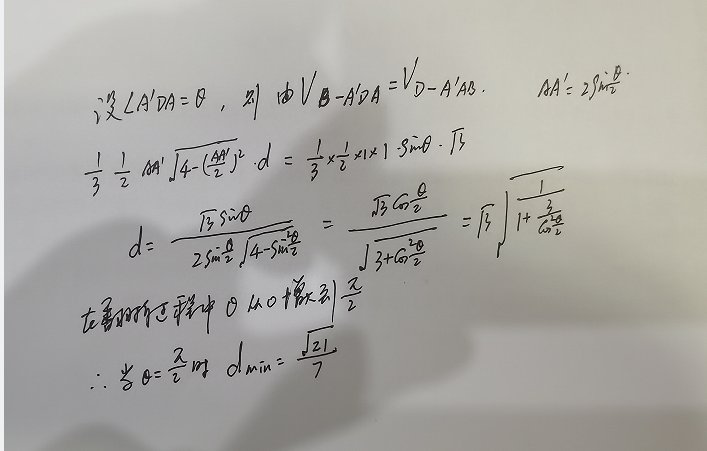 设∠A'DA=θ, 则 由V_{B-A'DA}=V_{D-A'AB}. AA'=2sin\frac{θ}{2}.
\frac{1}{3} \frac{1}{2} AA' \sqrt{4-(\frac{AA'}{2})^2} · d = \frac{1}{3}×\frac{1}{2}×1×1·sinθ·√3
d= \frac{√3 sinθ}{2sin\frac{θ}{2}\sqrt{4-sin^2\frac{θ}{2}}} = \frac{√3 cos\frac{θ}{2}}{\sqrt{3+cos^2\frac{θ}{2}}} = √3 \sqrt{\frac{1}{1+\frac{3}{cos^2\frac{θ}{2}}}}
在翻折过程中 θ 从0增大到\frac{π}{2}
∴ 当θ=\frac{π}{2}时 d_{min}=\frac{√21}{7}